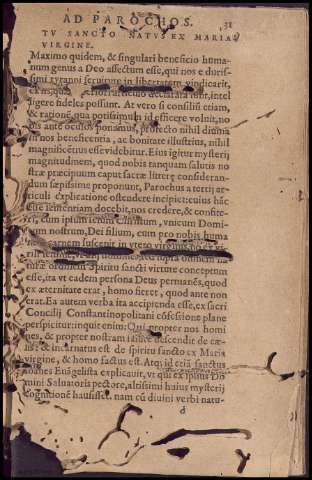 AD PAROCHOS. 31
TV SANCTO NATVS EX MARIA
VIRGINE.
Maximo quidem, & singulari beneficio huma-
num genus a Deo affectum esse, qui nos e duris-
simi tyranni seruitute in libertatem vindicarit,
declarata sunt, intel
ligere fideles possunt. At vero si consilij etiam,
& rationē, qua potissimum id efficere voluit, no
bis ante oculos ponamus, profecto nihil diuina
in nos beneficentia, ac bonitate illustrius, nihil
magnificetius esse videbitur. Eius igitur mysterij
magnitudinem, quod nobis tanquam salutis no
stræ præcipuum caput sacræ litteræ consideran-
dum sæpissime proponunt, Parochus a tertij ar-
ticuli explicatione ostendere incipiet: cuius hāc
esse sententiam docebit, nos credere, & confite-
ri, eum ipsum Iesum Christum, vnicum Domi-
num nostrum, Dei filium, cum pro nobis huma
carnem suscepit in vtero virginis, no ex vi-
rili semine, vt
ordinem Spiritus sancti virtute conceptum
esse, ita vt eadem persona Deus permanēs, quod
ex æternitate erat, homo fieret, quod ante non
erat. Ea autem verba ita accipienda esse, ex sacri
Concilij Constantinopolitani cōfessione plane
perspicitur: inquit enim: Qui propter nos homi
nes, & propter nostram salutē descendit de cæ-
lis: & incarnatus est de spiritu sancto ex Maria
virgine, & homo factus est. Atq; id etiā sanctus
Ioannes Euāgelista explicauit, vt qui ex ipsius Do
mini Saluatoris pectore, altissimi huius mysterij
cognitionē hausisset. nam cū diuini verbi natu-
d